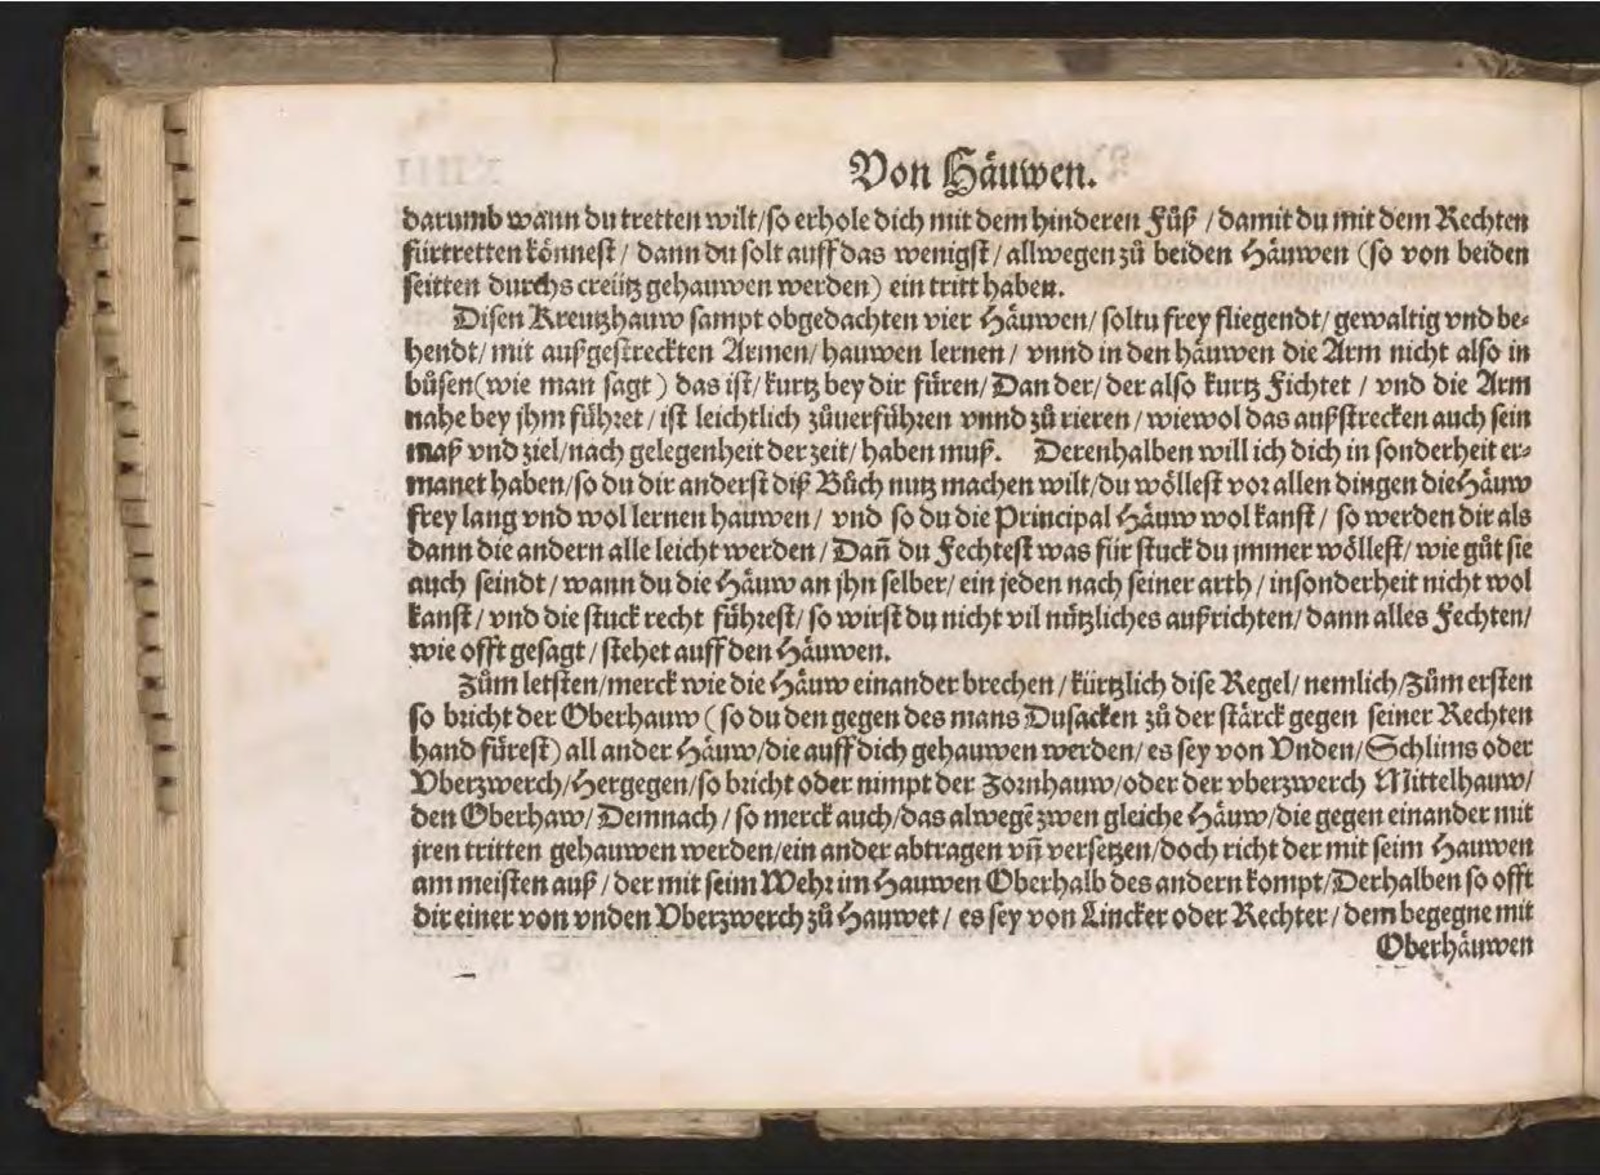 Von Häuwen.
darumb wann du tretten wilt/so erhole dich mit dem hinderen Fůß/damit du mit dem Rechten
fürtretten könnest/ dann du solt auff das wenigst/allwegen zů beiden Häuwen (so von beiden
seitten durchs creütz gehauwen werden) ein tritt haben.
Disen Kreutzhauw sampt obgedachten vier Häuwen/ soltu frey fliegendt/gewaltig vnd be⸗
hendt/ mit außgestreckten Armen/hauwen lernen/ vnnd in den häuwen die Arm nicht also in
bůsen(wie man sagt) das ist/kurtz bey dir füren/Dan der/der also kurtz Fichtet/ vnd die Arm
nahe bey jhm führet/ist leichtlich zůuerführen vnnd zů rieren/wiewol das außstrecken auch sein
maß vnd ziel/nach gelegenheit der zeit/haben muß. Derenhalben will ich dich in sonderheit er⸗
manet haben/so du dir anderst diß Bůch nutz machen wilt/du wöllest vor allen dingen die Häuw
frey lang vnd wol lernen hauwen/ vnd so du die Principal Häuw wol kanst/ so werden dir als
dann die andern alle leicht werden/Dañ du Fechtest was für stuck du jmmer wöllest/wie gůt sie
auch seindt/wann du die Häuw an jhn selber/ein jeden nach seiner arth/insonderheit nicht wol
kanst/vnd die stuck recht führest/so wirst du nicht vil nützliches außrichten/dann alles Fechten/
wie offt gesagt/stehet auff den Häuwen.
Zům letsten/merck wie die Häuw einander brechen/kürtzlich dise Regel/nemlich/Zům ersten
so bricht der Oberhauw (so du den gegen des mans Dusacken zů der stärck gegen seiner Rechten
hand fürest) all ander Häuw/die auff dich gehauwen werden/es sey von Vnden/Schlims oder
Vberzwerch/Hergegen/so bricht oder nimpt der Zornhauw/oder der vberzwerch Mittelhauw/
den Oberhaw/Demnach/so merck auch/das alwegē zwen gleiche Häuw/die gegen einander mit
jren tritten gehauwen werden/ein ander abtragen vñ versetzen/doch richt der mit seim Hauwen
am meisten auß/der mit seim Wehr im Hauwen Oberhalb des andern kompt/Derhalben so offt
dir einer von vnden Vberzwerch zů Hauwet/es sey von Lincker oder Rechter/dem begegne mit
Oberhäuwen